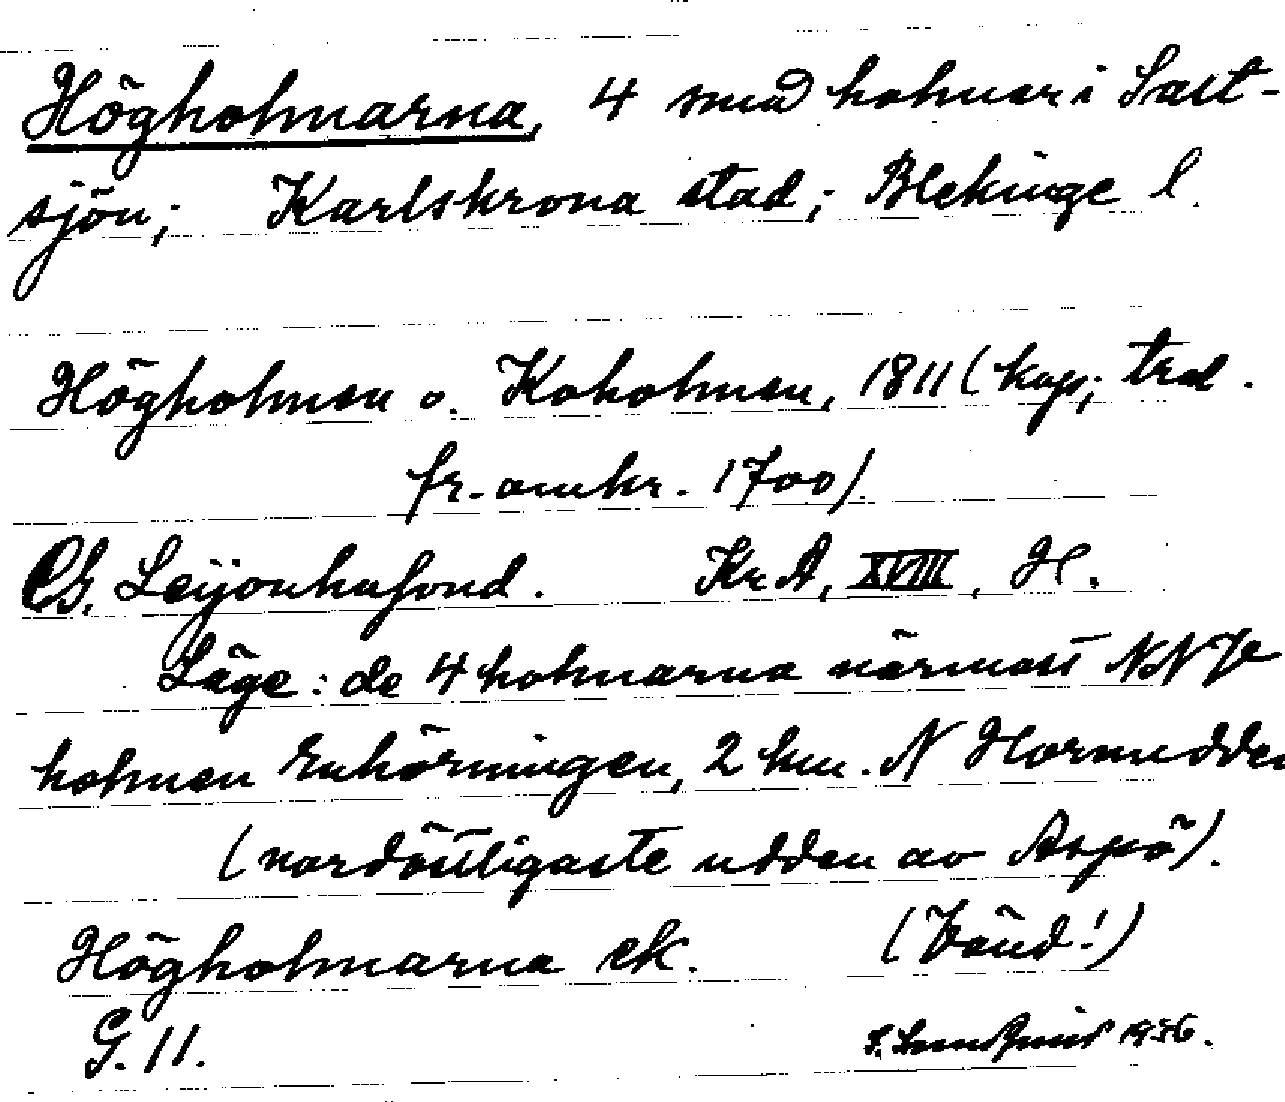 Högholmarna, 4 små holmar i Salt-
sjön; Karlskrona stad; Blekinge l.
Högholmen o. Koholmen, 1811 (kop; trol.
fr. omkr. 1700).
Leijonhufvud. Kr A, XVIII, H.
Läge: de 4 holmarna närmast NNV
holmen Enhörningen, 2 km. N Hornudden
(nordöstligaste udden av Aspö).
Högholmarna ek. (Vänd!)
G. 11. 1936.